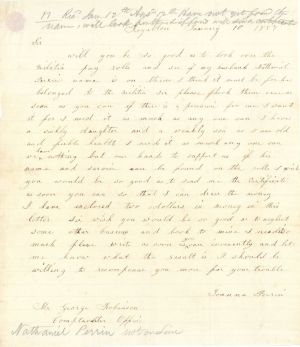 17 Rec Jan 12th Ansd 12th Have not yet found the
name, will look further
Royalton January 10 1857
Sir
will you be so good as to look over the
militia pay rolls and see if my husband Nathaniel
Perrin name is on them I think it must be for he
belonged to the militia sir please look them over as
soon as you can if there is a pension for me I want
it for I need it as much as any one can I have
a sickly daughter and a weakly son as I am old
and feeble health I need it as much any one can
have nothing but our hands to support us if his
name and service can be found on the rolls I wish
you would be so good as to send me the certificate
as soon you can so that I can draw the money
I have inclosed two dollars in money in this
letter sir wish you would be so good as to neglect
some other business and look to mine I need it
much please write as soon as you can conveniently and let
me know what the result is I should be
willing to recompense you more for your trouble
Joanna Perrin
Mr George Robinson
Comptroller Office
Nathaniel Perrin not on Line